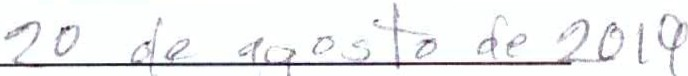 20 de agosto de 2019